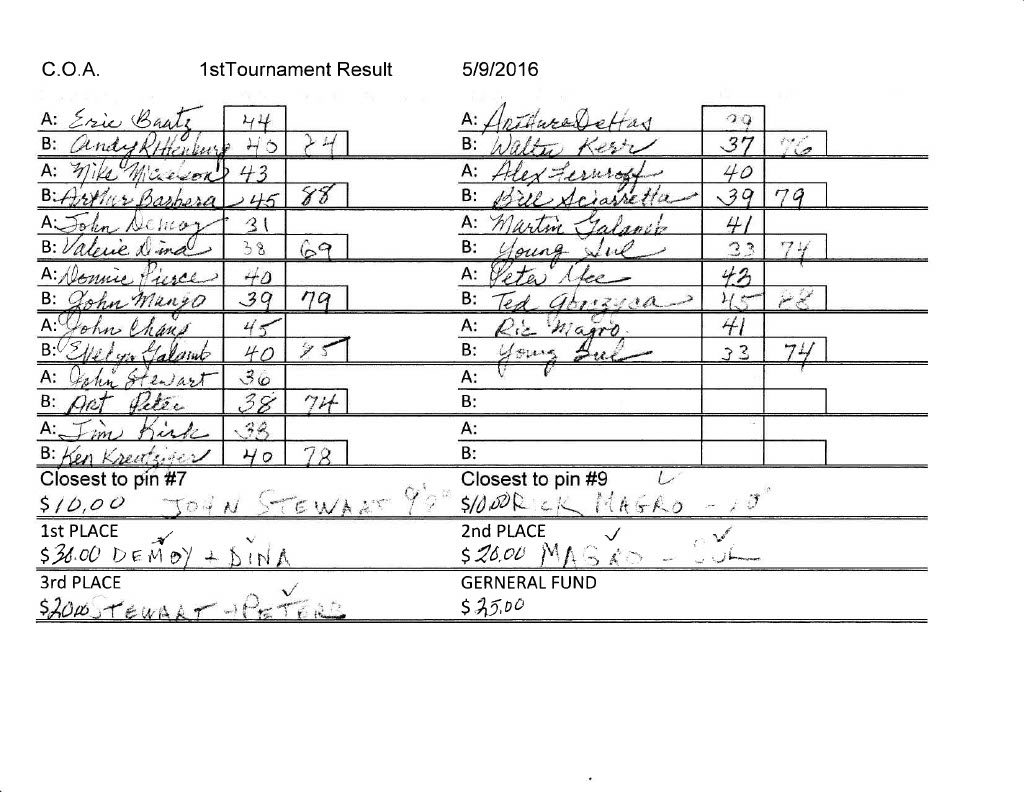 C.O.A. 1stTournament Result 5/9/2016
A: Eric Baatz 44
B: Andy Rittenburg 40 84
A: Mike Mickelson 43
B: Arthur Barbera 45 88
A: John Demoy 31
B: Valerie Dina 38 69
A: Donnie Pierce 40
B: John Mango 39 79
A: John Chans 45
B: Evelyn Galamb 40 85
A: John Stewart 36
B: Art Peter 38 74
A: Jim Kirk 38
B: Ken Kreutziger 40 78
Closest to pin #7
$10.00 JOHN STEWART 9'8"
1st PLACE
$30.00 DEMOY + DINA
3rd PLACE
$20.00 STEWART + PETERS
A: 39
B: Walter Kerr 37 76
A: Alex 40
B: Bill Sciarretta 39 79
A: Martin Galamb 41
B: Young Sul 33 74
A: Peter 43
B: Ted Gorzyca 45 88
A: Ric Magro. 41
B: Young Sul 33 74
A:
B:
A:
B:
Closest to pin #9
$10.00 RICK MAGRO - 10"
2nd PLACE
$20.00 MAGRO - SUL
GERNERAL FUND
$25.00